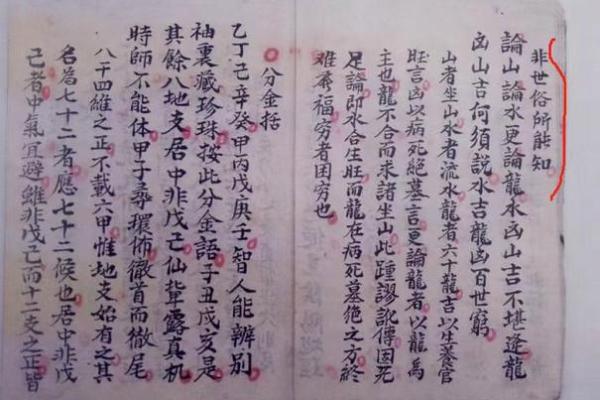 非世俗所能知
論山論水更論龍水凶山吉不堪逢龍
凶山吉何須說水吉龍凶百世窮
山者坐山水者流水龍者六十龍吉以生养官
旺言凶以病死絕墓言更論龍者以龍為
主也龍不合而求諸坐山此踵謬訛傳固無
足論即水合生旺而龍在病死墓绝之方終
难 福穷者困穷也
分金括
乙丁己辛癸甲丙戊庚子智人能辨别
袖裏藏珍珠按此分金語子丑戌亥是
其餘八地支居中非戊己仙 露真机
時師不能体甲子尋環佈徹首而徹尾
八干四維之正不載六甲惟地支始有之其
名為七十二者應七十二候也居中非戊
己者中氣宜避雖非戊己而十二支之正皆